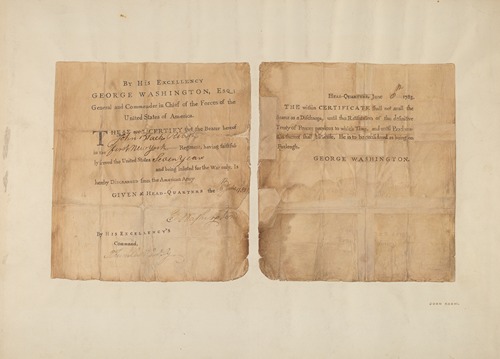 By His Excellency
GEORGE WASHINGTON, Esq;
General and Commander in Chief of the Forces of the
United States of America.
THESE are to CERTIFY that the Bearer hereof
in the First New York Regiment, having faithful-
ly served the United States Seven Years
and being inlisted for the War only, is
hereby Discharged from the American Army.
GIVEN at Head-Quarters the
G Washington
By His Excellency's
Command,
Head-Quarters, June 1783.
THE within CERTIFICATE shall not avail the
Bearer as a Discharge, until the Ratification of the definitive
Treaty of Peace; previous to which Time, and until Proclama-
tion thereof shall be made, He is to be considered as being on
Furlough.
GEORGE WASHINGTON.